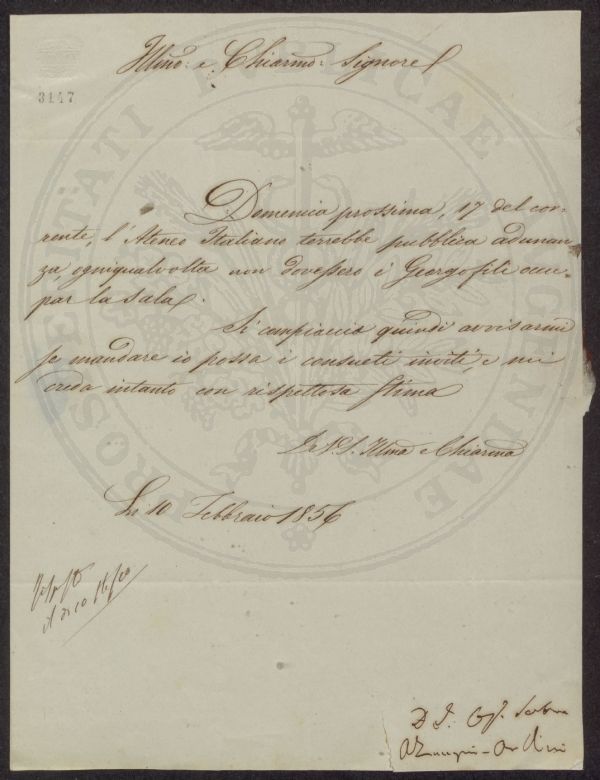 Illmo: e Chiarmo: Signore
3147
Domenica prossima, 17 del cor-
rente, l'Ateneo Italiano terrebbe pubblica adunan
za, ogniqualvolta non dovessero i Georgofili occu-
par la sala.
Si compiaccia quindi avvisarmi
se mandare io possa i consueti inviti, e mi
creda intanto con rispettosa stima
Di V. S. Illma e Chiarma
Li 10 Febbraio 1856
PROSPERITATI PUBLICAE AUGENDAE